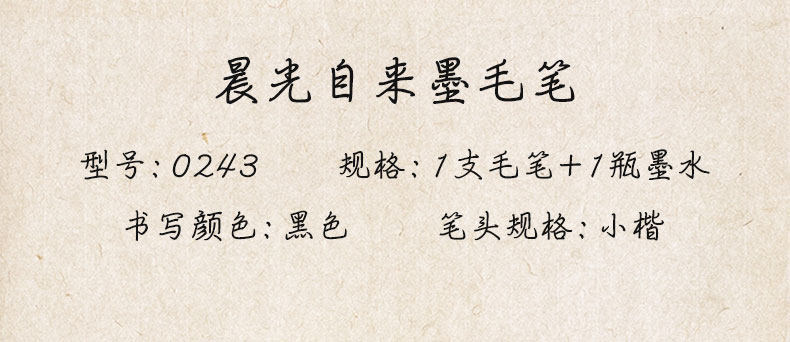 晨光自来墨毛笔
型号：0243 规格：1支毛笔+1瓶墨水
书写颜色：黑色 笔头规格：小楷